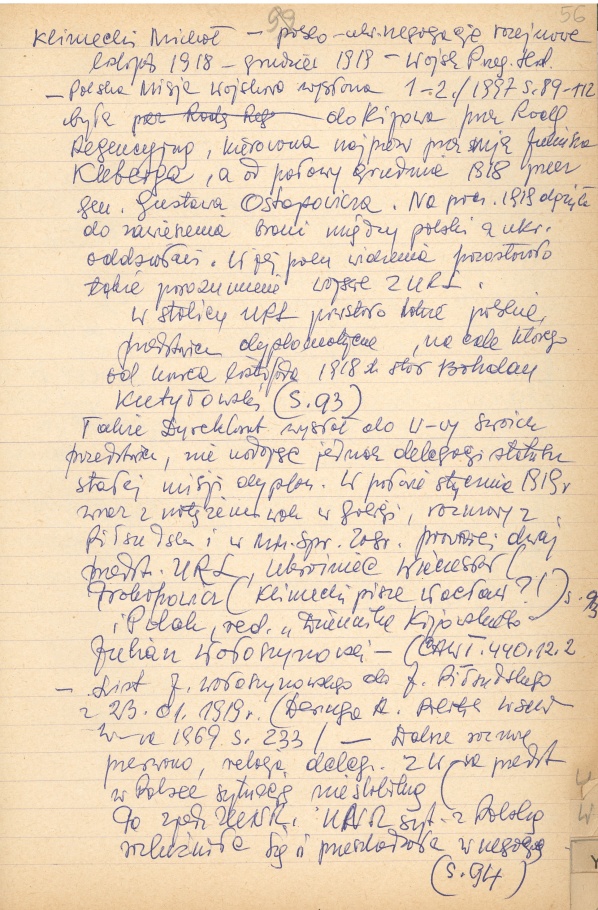 99 56
Klimecki Michał – polsko-ukr. negocjacje rozejmowe
listopad 1918 – grudzień 1919 – Wojsk. Przeg. Hist.
– Polska Misja wojskowa wysłana 1-2/1997 s. 89-112
była przez Radę Reg do Kijowa przez Radę
Regencyjną, kierowana najpierw przez mjra Juliusza
Kleberga, a od połowy grudnia 1918 przez
gen. Gustawa Ostapowicza. Na pocz. 1919 dążyła
do zawieszenia broni między polski a ukr.
oddziałami. W jej polu widzenia pozostawało
także porozumienie wojsk z URL.
W stolicy URL powstało także polskie
przedstaw. dyplomatyczne, na czele którego
od końca listopada 1918 r. stał Bohdan
Kutyłowski (s. 93)
Także Dyrektoriat wysłał do W-wy swoich
przedstaw., nie nadając jednak delegacji statutu
stałej misji dyplom. W połowie stycznia 1919 r
wraz z walk w Galicji, rozmowy z
Piłsudskim i w Min. Spr. Zagr. prowadzili dwaj
przedst. URL, Ukrainiec Wiaczesław
Prokopowicz (Klimecki pisze Wacław?!) s. 93
i Polak, red. „Dziennika Kijowskiego”
Julian Wołoszynowski – (CAW I.440.12.2
– List J. Wołoszynowskiego do J. Piłsudskiego
z 23.01.1919 r. (Deruga A.
W-wa 1969 s. 233) – Dalsze rozmowy
przerwano, relacja delegacji z
w Polsce sytuację niestabilną (
Po zjedn. ZUNR i UNR syt. z Polską
i przeszkadzała w negocja
(s. 94)